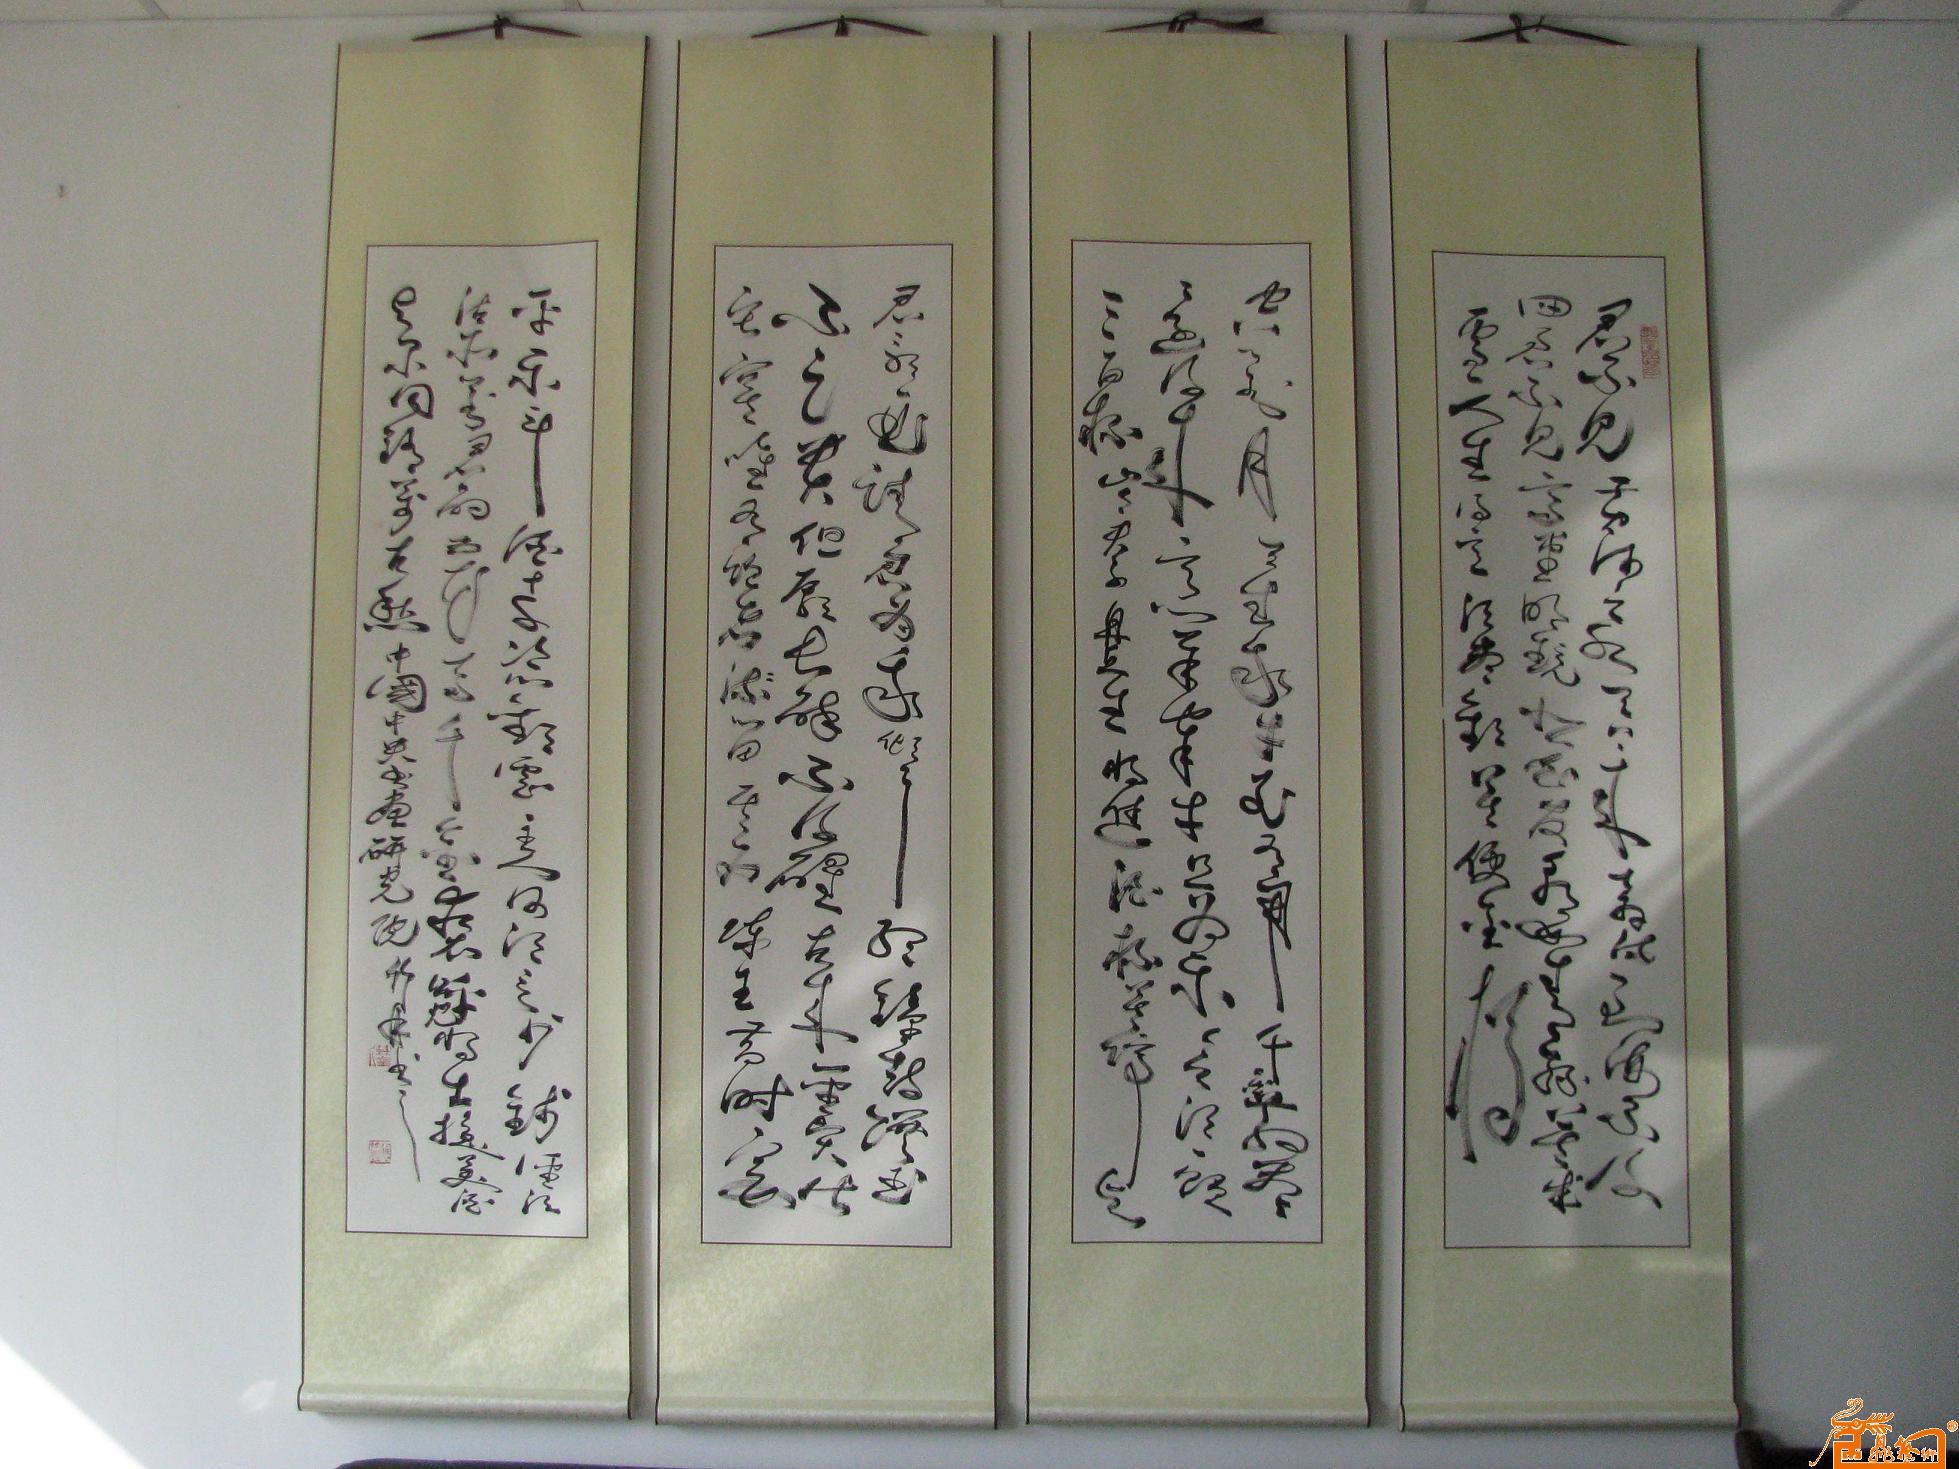 君不见黄河之水天上来奔流到海不复
回君不见高堂明镜悲白发朝如青丝暮成
雪人生得意须尽欢莫使金樽
空对月天生我材必有用千金散尽
还复来烹羊宰牛且为乐会须一饮
三百杯岑夫子丹丘生将进酒杯莫停与
君歌一曲请君为我倾耳听钟鼓馔玉
不足贵但愿长醉不复醒古来圣贤
皆寂寞惟有饮者留其名陈王昔时宴
平乐斗酒十千恣欢谑主人何为言少钱径须
沽取对君酌五花马千金裘呼儿将出换美酒
与尔同销万古愁中国中央书画研究院